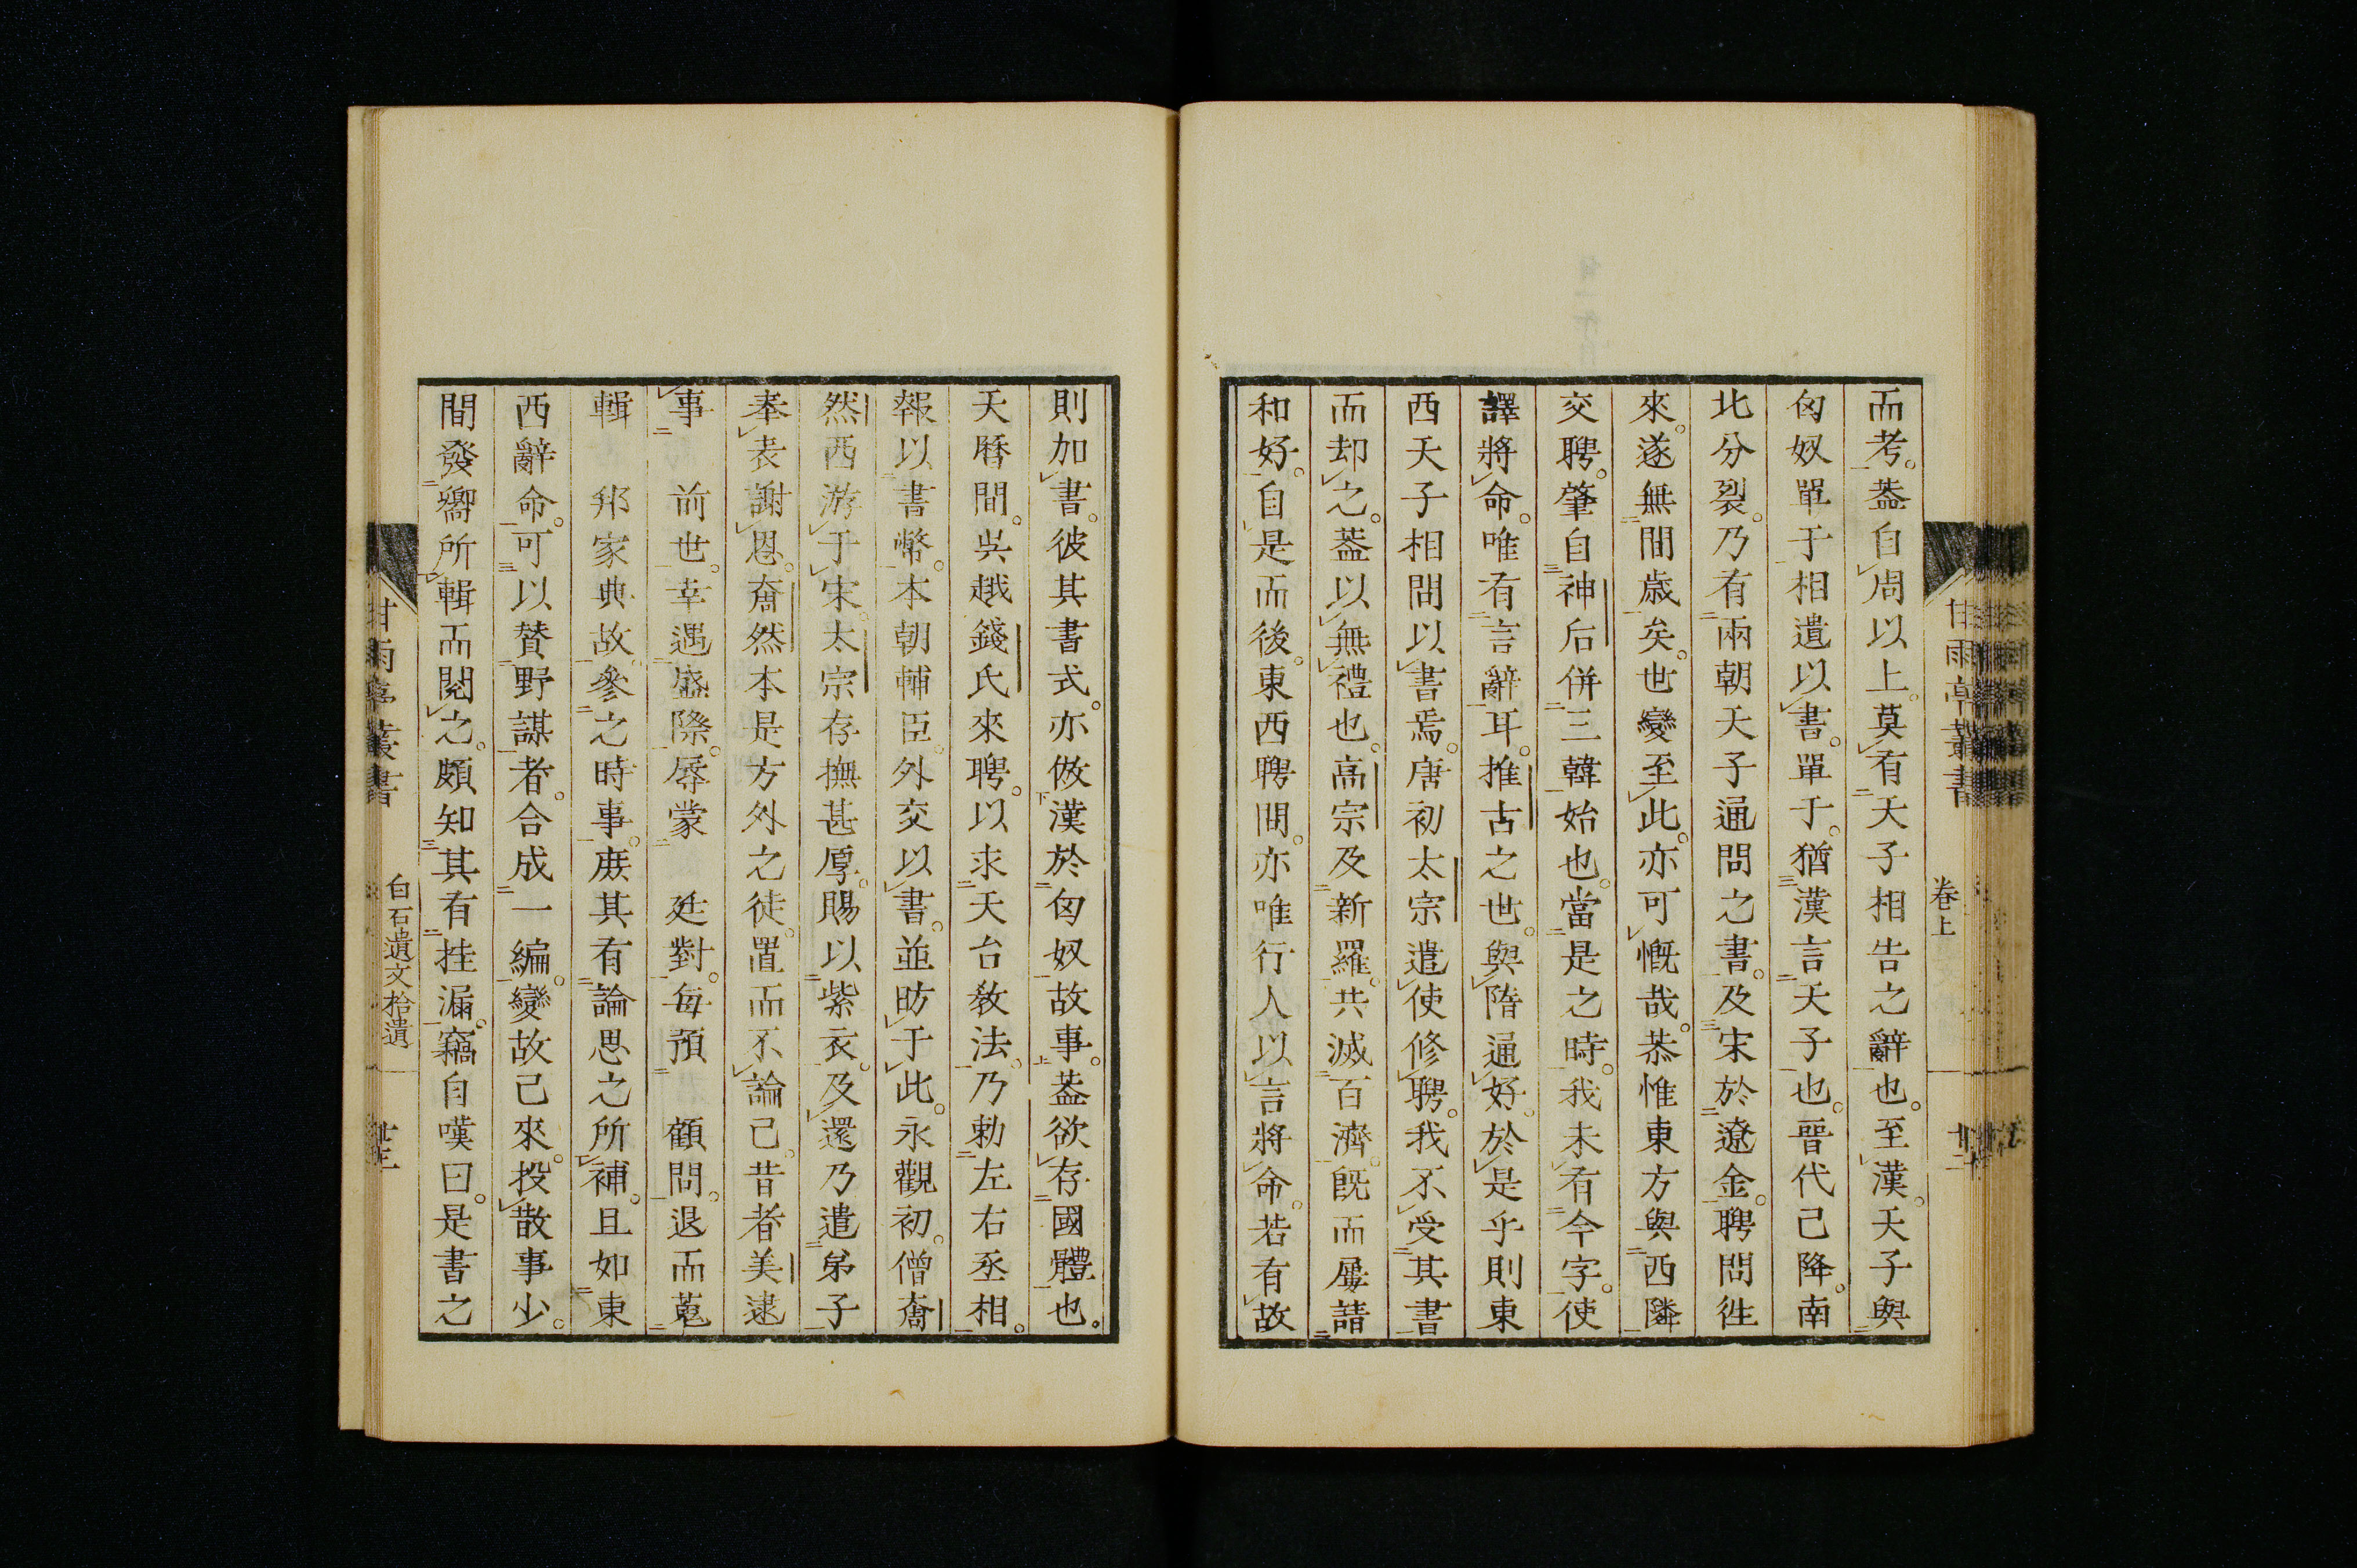 而考。葢自周以上。莫有天子相告之辭也。至漢。天子與
匈奴單于相遺以書。單于。猶漢言天子也。晉代已降。南
北分裂。乃有兩朝天子通問之書。及宋於遼金。聘問徃
來。遂無間歲矣。世變至此。亦可慨哉。恭惟東方與西隣
交聘。肇自神后併三韓始也。當是之時。我未有今字。使
譯將命。唯有言辭耳。推古之世。與隋通好。於是乎則東
西天子相問以書焉。唐初太宗遣使修聘。我不受其書
而却之。葢以無禮也。高宗及新羅。共滅百濟。旣而屢請
和好。自是而後。東西聘問。亦唯行人以言將命。若有故
甘雨亭叢書
卷上
十二
則加書。彼其書式。亦倣漢於匈奴故事。葢欲存國體也。
天曆間。吳越錢氏來聘。以求天台教法。乃勅左右丞相。
報以書幣。本朝輔臣。外交以書。並昉于此。永觀初。僧奝
然西游于宋。太宗存撫甚厚。賜以紫衣。及還乃遣弟子
奉表謝恩。奝然本是方外之徒。置而不論已。昔者美逮
事　前世。幸遇盛際。辱蒙　廷對。每預　顧問。退而蒐
輯　邦家典故。參之時事。庶其有論思之所補。且如東
西辭命。可以賛野謀者。合成一編。變故已來。投散事少。
間發嚮所輯而閱之。頗知其有挂漏。竊自嘆曰。是書之
甘雨亭叢書
白石遺文拾遺
十三